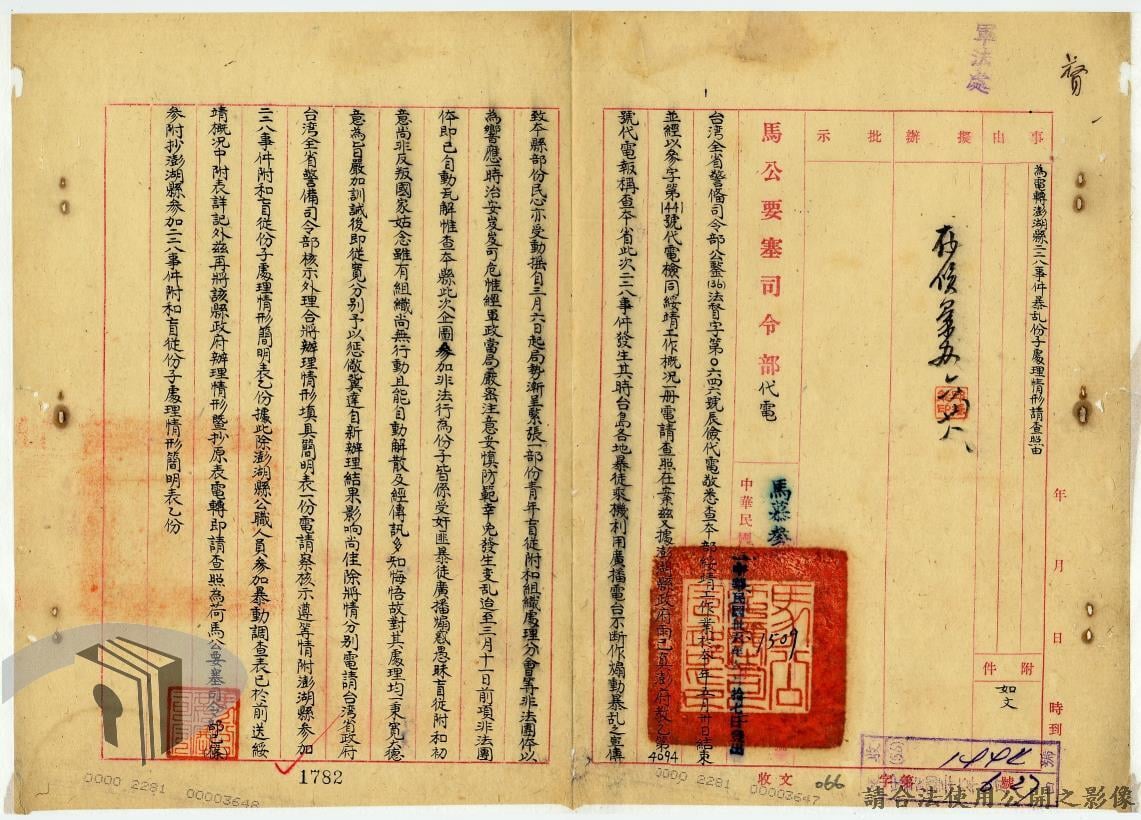 軍法處
督
事由
擬辦
批示
為電轉澎湖縣二二八事件暴乱份子處理情形請查照由
年月日
時到
附件
如文
馬公要塞司令部代電
中華民國
1509
台湾全省警俻司令部公鑒(36)法督字第0646號辰儉代電敬悉查本部綏靖工作業於本年五月廿日結束
並經以参字第1441號代電檢同綏靖工作概况一册電請查照在案茲又據澎湖縣政府
4094
號代電報稱查本省此次二二八事件發生其時台島各地暴徒乘機利用廣播電台不断作煽動暴乱之宣傳
致本縣部份民心亦受動摇自三月六日起局勢漸呈緊張一部份青年盲従附和組織處理分會等非法團体以
為響應一時治安岌岌可危惟經軍政當局嚴密注意妥慎防範幸免發生变乱迨至三月十一日前項非法團
体即已自動瓦解惟查本縣此次企圖参加非法行為份子皆係受奸匪暴徒廣播煽惑愚昧盲従附和初
意尚非反叛國家姑念雖有組織尚無行動且能自動解散及經傳訊多知悔悟故對其處理均一秉寬大德
意為旨嚴加訓誡後即從寬分別予以惩儆冀達自新辦理結果影响尚佳除將情分別電請台湾省政府
台湾全省警備司令部核示外理合將辦理情形填具簡明表一份電請察核示遵等情附澎湖縣参加
二二八事件附和盲従份子處理情形簡明表乙份據此除澎湖縣公職人員参加暴動調查表已於前送綏
靖概况中附表詳記外茲再將該縣政府辦理情形暨抄原表電轉即請查照為荷馬公要塞司令部
参附抄澎湖縣参加二二八事件附和盲従份子處理情形簡明表乙份
收文
066
字第
號
1782
0000 2281 00003648
0000 2281 00003647
請合法使用公開之影像